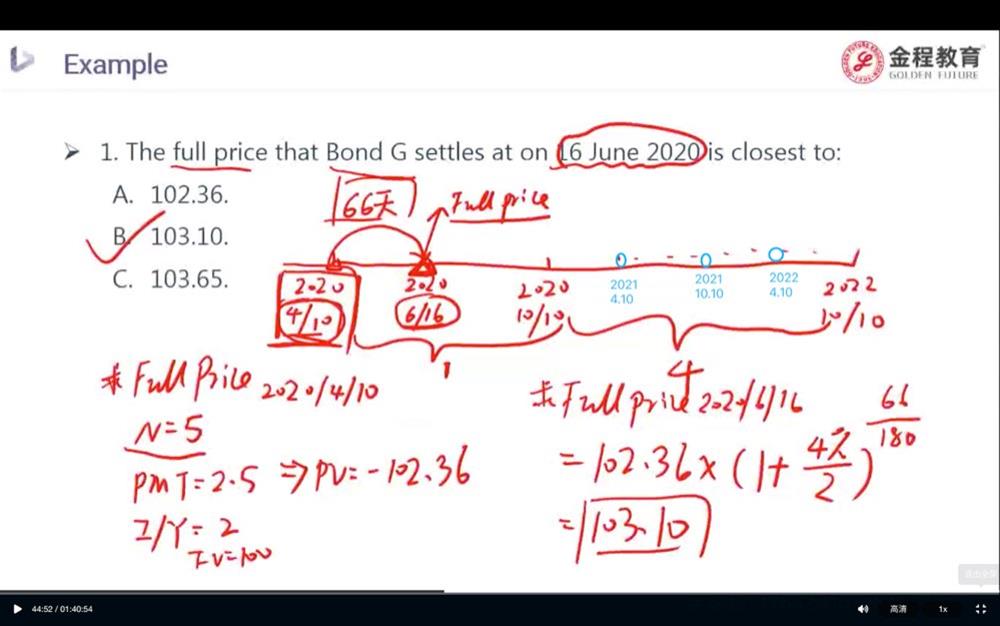 Example
金程教育
GOLDEN FUTURE
➤ 1. The full price that Bond G settles at on 16 June 2020 is closest to:
A. 102.36.
B. 103.10.
C. 103.65.
66天
Full price
2020
4/10
2020
6/16
2020
10/10
2021
4.10
2021
10.10
2022
4.10
2022
10/10
1
4
* Full Price 2020/4/10
N=5
PMT=2.5 ⇒ PV=-102.36
I/Y=2
FV=100
* Full price 2020/6/16
= 102.36 × (1+ 4%/2)^66/180
= 103.10
44:52 / 01:40:54
高清
1x